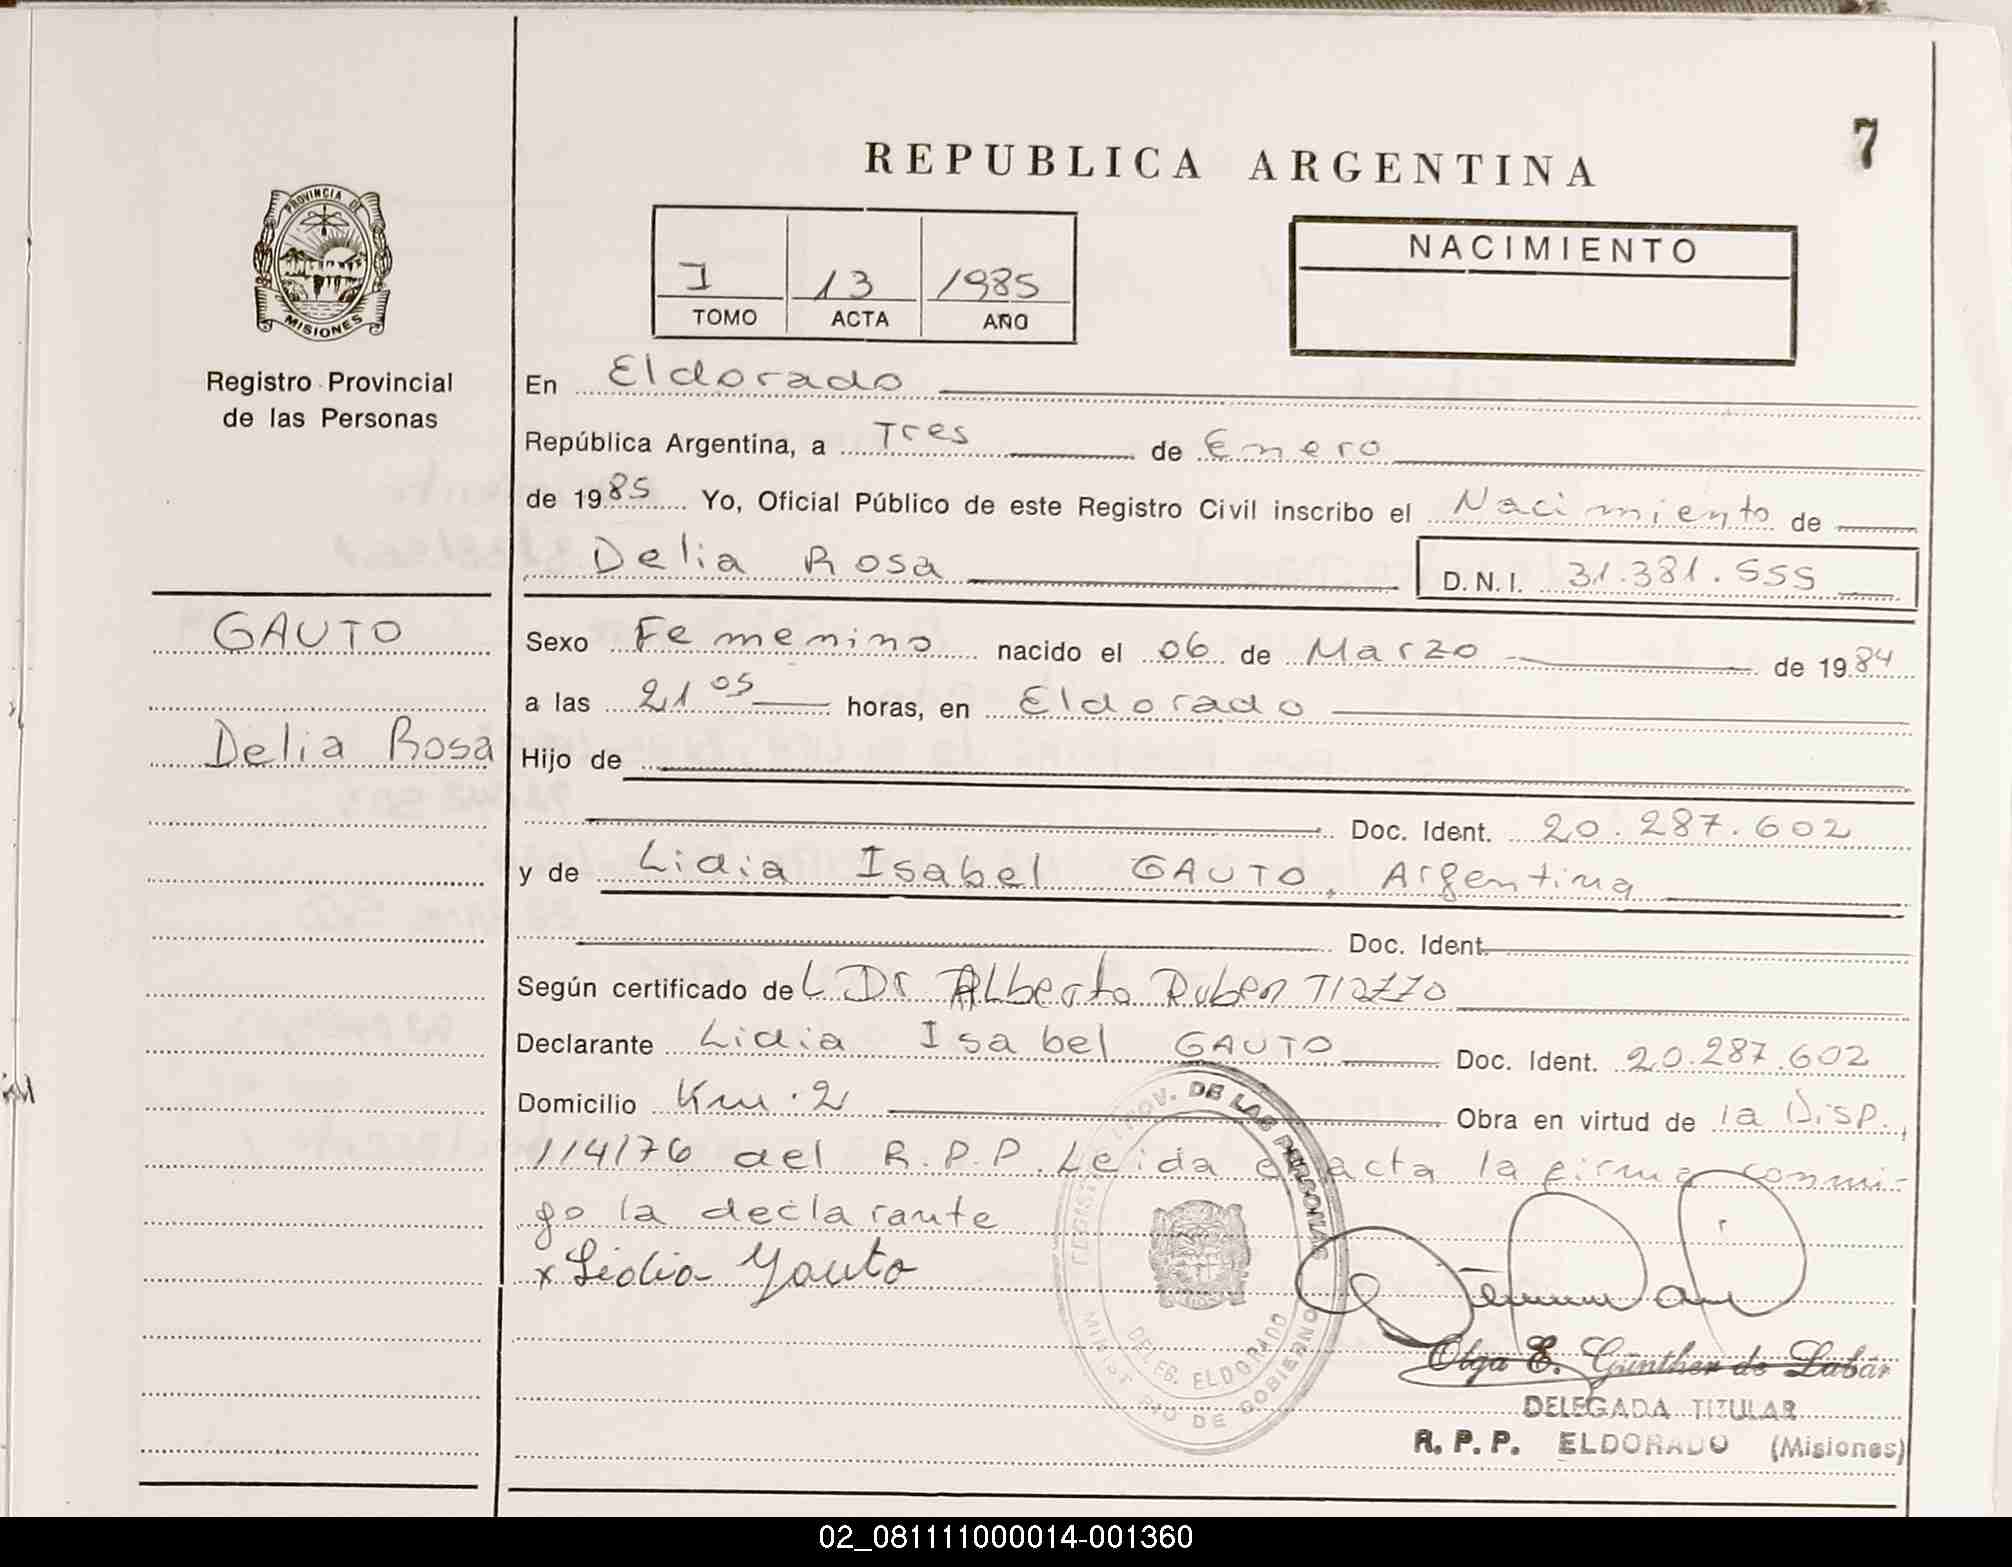 7
REPUBLICA ARGENTINA
PROVINCIA DE
MISIONES
Registro Provincial
de las Personas
I 13 1985
TOMO ACTA AÑO
NACIMIENTO
En Eldorado
República Argentina, a Tres de Enero
de 1985 Yo, Oficial Público de este Registro Civil inscribo el Nacimiento de
Delia Rosa D.N.I. 31.381.555
GAUTO
Sexo Femenino nacido el 06 de Marzo de 1984
a las 21 05 horas, en Eldorado
Delia Rosa
Hijo de
Doc. Ident. 20.287.602
y de Lidia Isabel GAUTO, Argentina
Doc. Ident.
Según certificado del Dr Alberto Ruben
Declarante Lidia Isabel GAUTO Doc. Ident. 20.287.602
Domicilio Km. 2 Obra en virtud de la Disp.,
114/76 del R.P.P. Leida el acta la firma conmi-
go la declarante
x Lidia Gauto
PROV. DE LAS PERSONAS
DELEG. ELDORADO
DE GOBIERNO
Olga E. Günther de Labár
DELEGADA TITULAR
R. P. P. ELDORADO (Misiones)
02_081111000014-001360